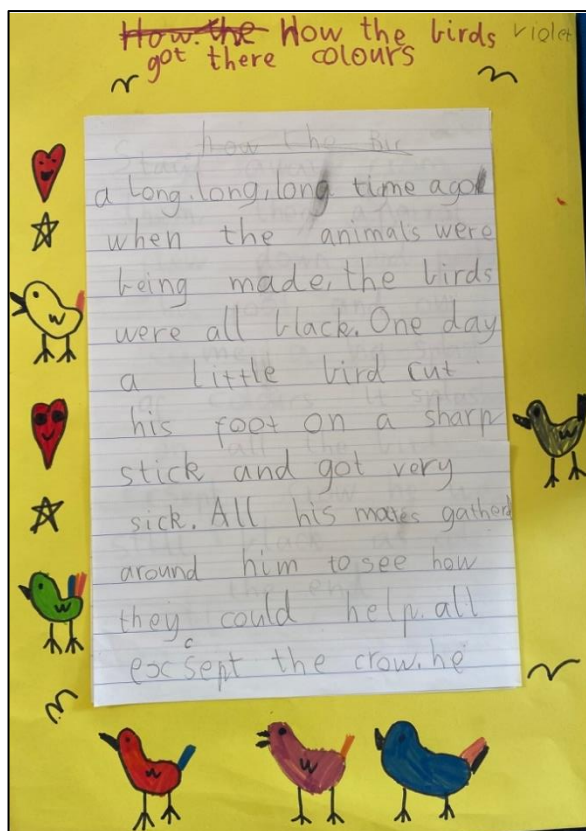 How the How the birds violet
got there colours
how the Bir
a long, long, long time ago
when the animals were
being made, the birds
were all black. One day
a little bird cut
his foot on a sharp
stick and got very
sick. All his mates gatherd
around him to see how
they could help. all
excsept the crow. he